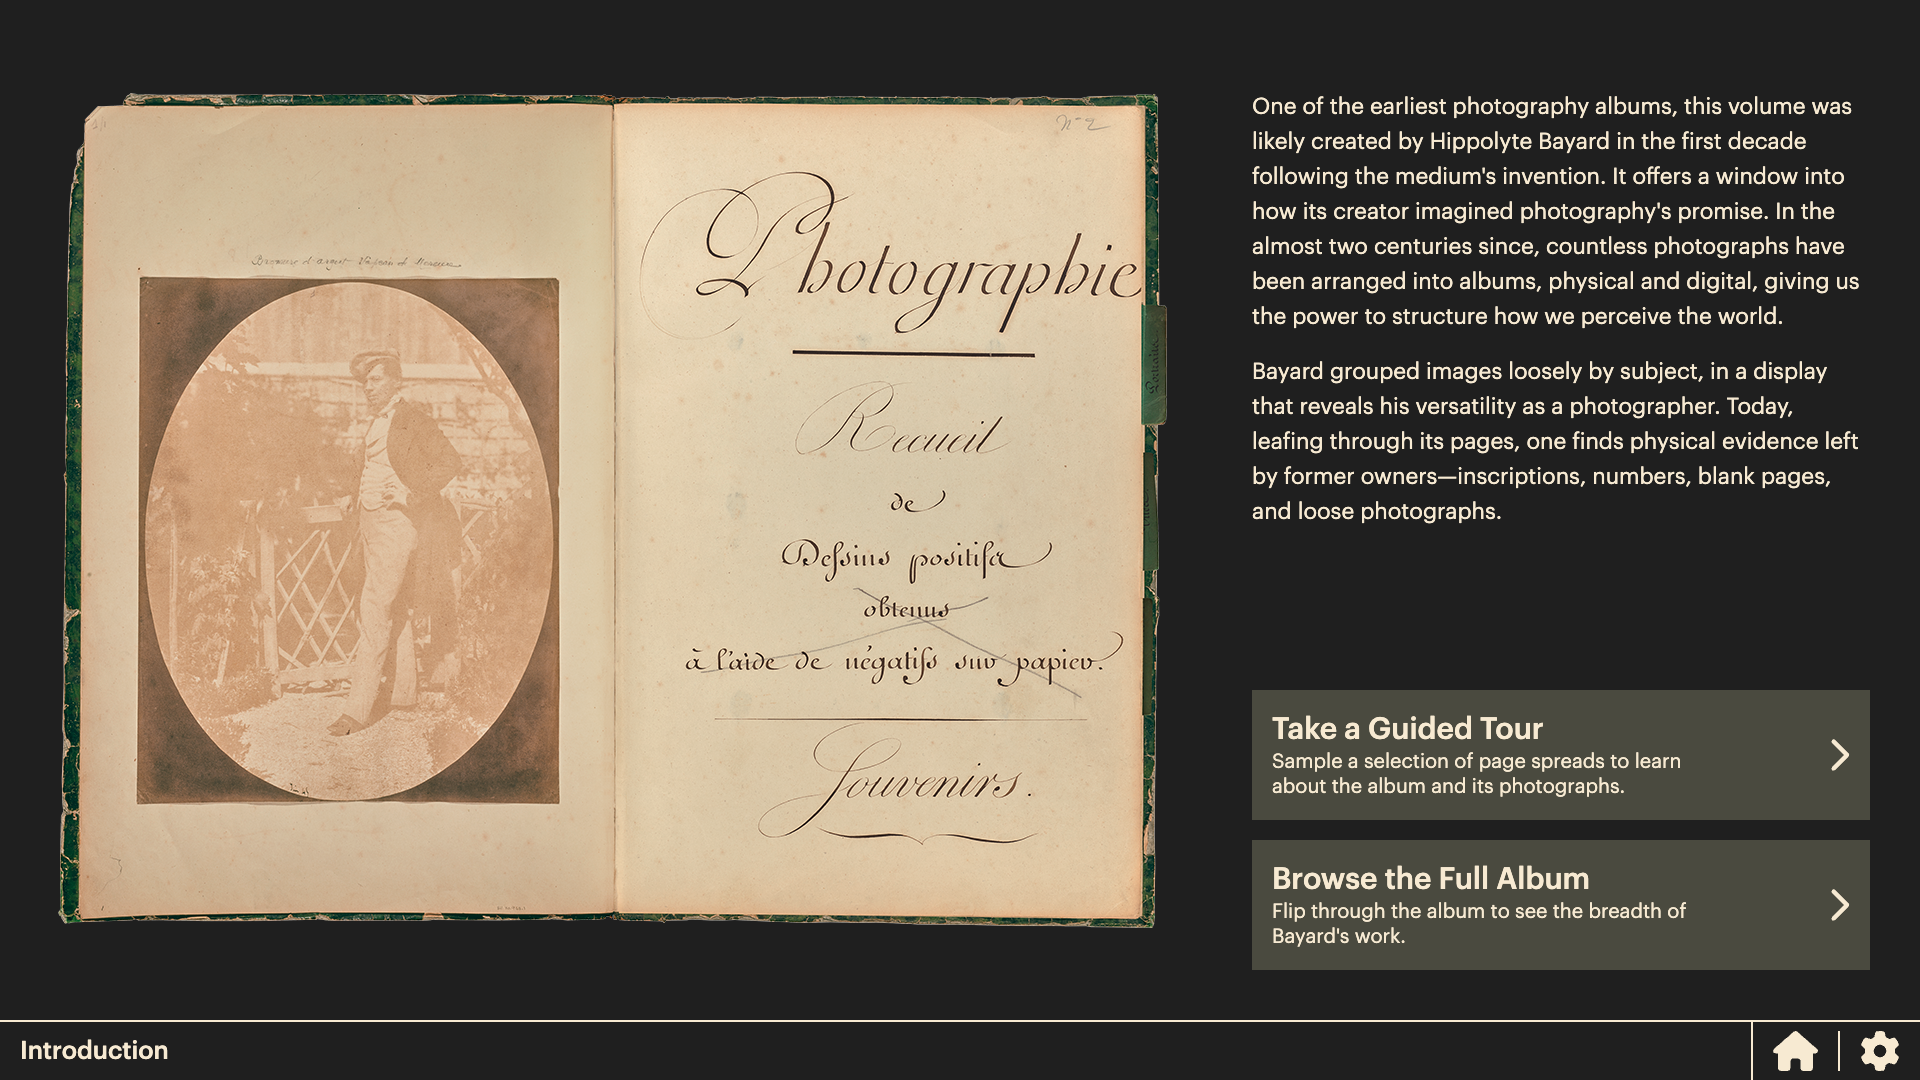 N° 2
Photographie
Recueil
de
Dessins positifs
obtenus
à l'aide de négatifs sur papier.
Souvenirs.
Portraits
One of the earliest photography albums, this volume was
likely created by Hippolyte Bayard in the first decade
following the medium's invention. It offers a window into
how its creator imagined photography's promise. In the
almost two centuries since, countless photographs have
been arranged into albums, physical and digital, giving us
the power to structure how we perceive the world.
Bayard grouped images loosely by subject, in a display
that reveals his versatility as a photographer. Today,
leafing through its pages, one finds physical evidence left
by former owners—inscriptions, numbers, blank pages,
and loose photographs.
Take a Guided Tour
Sample a selection of page spreads to learn
about the album and its photographs.
Browse the Full Album
Flip through the album to see the breadth of
Bayard's work.
Introduction